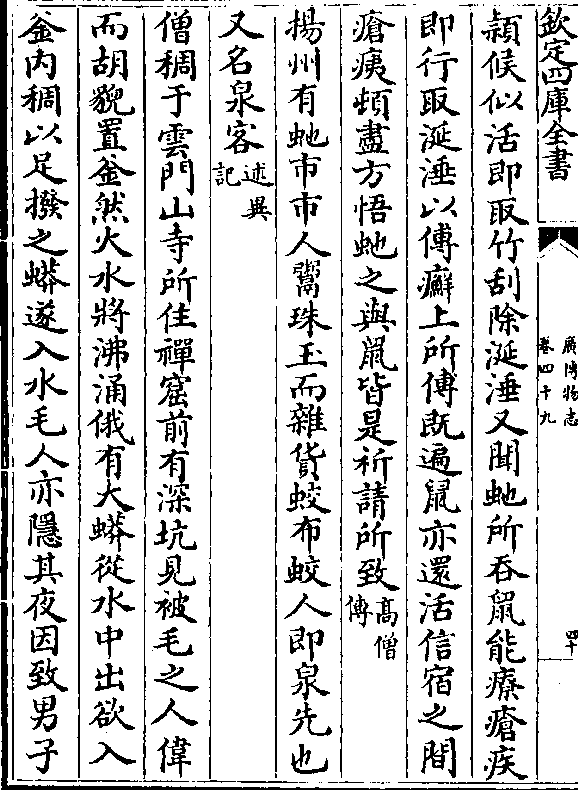 欽定四庫全書
廣博物志
卷四十九
四十
頴候似活即取竹刮除涎涶又聞虵所吞鼠能療瘡疾
即行取涎涶以傅癬上所傅既遍鼠亦還活信宿之間
瘡痍頓盡方悟虵之與鼠皆是祈請所致高僧傳
揚州有虵市市人鬻珠玉而雜貨蛟布蛟人即泉先也
又名泉客述異記
僧稠于雲門山寺所住禪窟前有深坑見被毛之人偉
而胡貌置釜然火水將沸涌俄有大蟒從水中出欲入
釜内稠以足撥之蟒遂入水毛人亦隱其夜因致男子